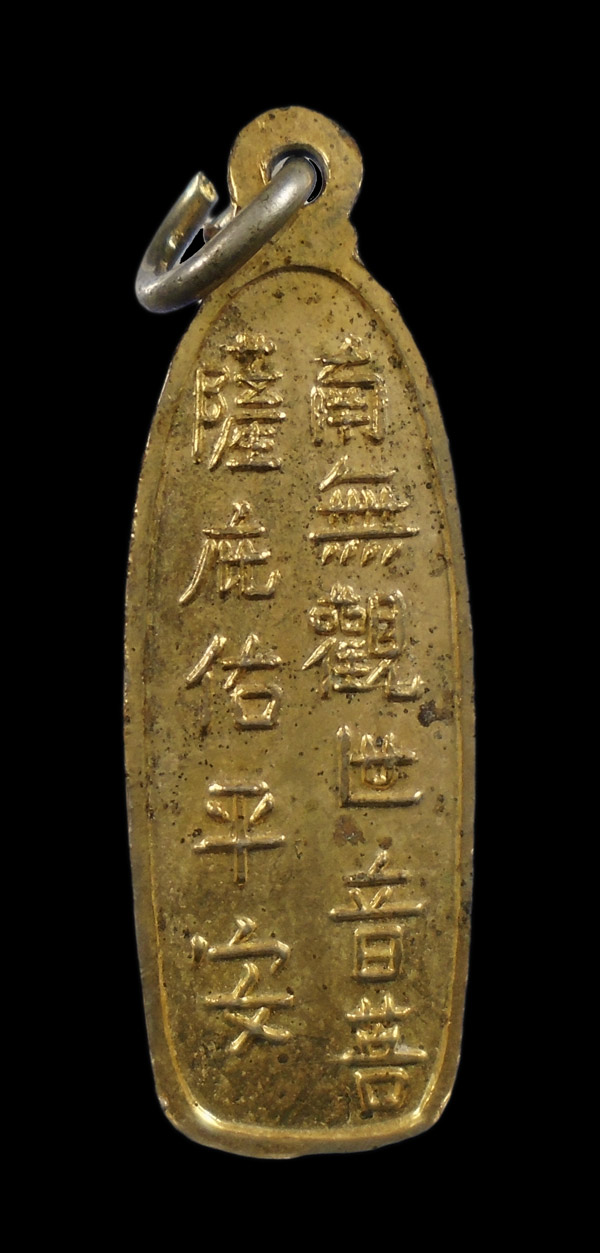 南無觀世音菩
薩庇佑平安